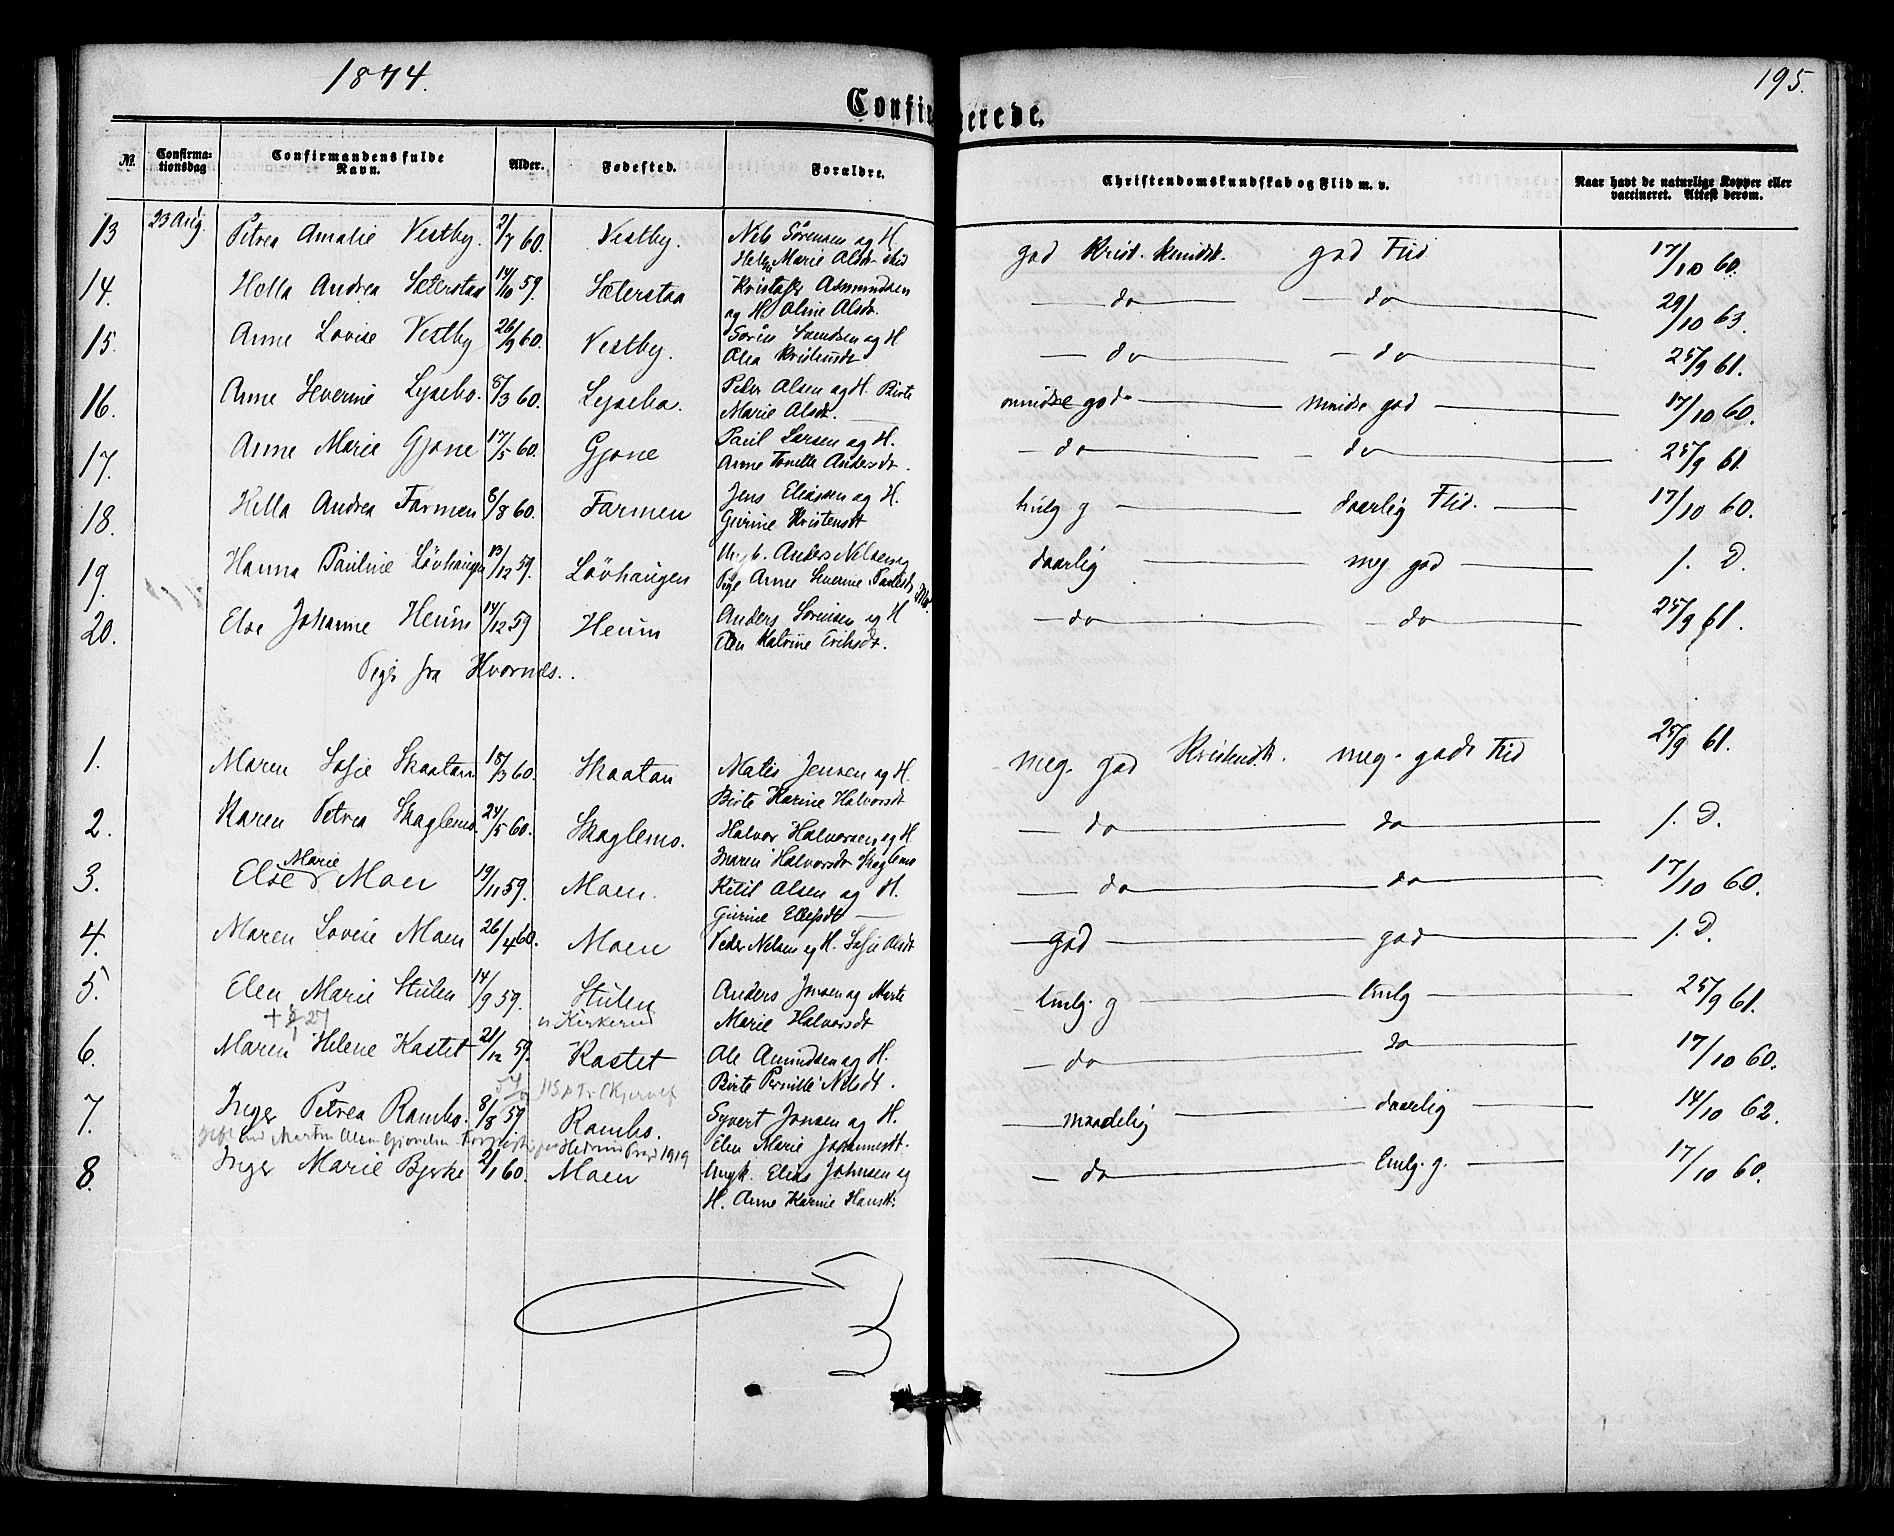 1874.
195.
Confirmerede.
№.
Confirma-
tionsdag
Confirmandens fulde
Navn.
Alder.
Fødested.
Forældre.
Christendomskundskab og Flid m. v.
Naar havt de naturlige Kopper eller
vaccineret. Attest derom.
13 23 Aug. Petrea Amalie Vestby. 2/7 60. Vestby. Nels Sörensen og H.
Helene Marie Olsdr. god Krist. kundsk. god Flid 17/10 60.
14. Hella Andrea Sæterstaa 14/10 59. Sæterstaa Kristofer Asmundsen
og H. Oline Olsdr. do do 29/10 63.
15. Anne Lovise Vestby 26/9 60. Vestby. Sörn Svendsen og H
Olea Kristendt do do 25/9 61.
16. Anne Severine Lysebo. 5/3 60. Lysebo. Peder Olsen og H. Birte
Marie Olsdr. mindre god mindre god 17/10 60.
17. Anne Marie Gjone 17/5 60. Gjone Paul Larsen og H.
Anne Tonette Andersdr. do do 25/9 61.
18. Hella Andrea Farmen 6/8 60. Farmen Jens Eliassen og H.
Gurine Kristensdt temlig g daarlig Flid. 17/10 60.
19. Hanna Pauline Lövhaugen 13/12 59. Lövhaugen Ungk. Anders Nelsen og
Pige Anne Severine Paulsdr. daarlig meg god f. D.
20. Else Johanne Heum 14/12 59 Heum Anders Sörensen og H
Elen Katrine Eriksdr. do do 25/9 61.
Piger fra Hvarnes.
1. Maren Sofie Skaatan 18/3 60. Skaatan Matis Jensen og H.
Birte Karine Halvorsdt meg. god Kristendk. meg. gode Flid 25/9 61.
2. Karen Petrea Skaglemo. 24/5 60. Skaglemo. Halvor Halvorsen og H
Maren Halvorsdt Skaglemo do do f. D.
3. Else Marie Moen 19/11 59. Moen. Ketil Olsen og H.
Gurine Ellefsdt do do 17/10 60.
4. Maren Lovise Moen 26/4 60. Moen Peder Nelsen og H. Sofie Olsdt god god f. D.
5. Elen Marie Stulen 14/9 59. Stulen Anders Jensen og Marte
27 n Kirkerud Marie Halvorsdt temlg. g temlg 25/9 61.
6. Maren Helene Kastet 21/12 59. Kastet Ole Amundsen og H.
Birte Pernille Nelsdt. do do 17/10 60.
7. Inger Petrea Rambo. 8/8 59. Rambo. Syvert Jonsen og H.
Elen Marie Johannesdt. maadelig daarlig 14/10 62.
gift med Martin Olsen Hedrum 1919
8. Inger Marie Bjerke 2/1 60. Moen Ungk. Elias Johnsen og
H. Anne Karine Hansdt. do temlg. g. 17/10 60.